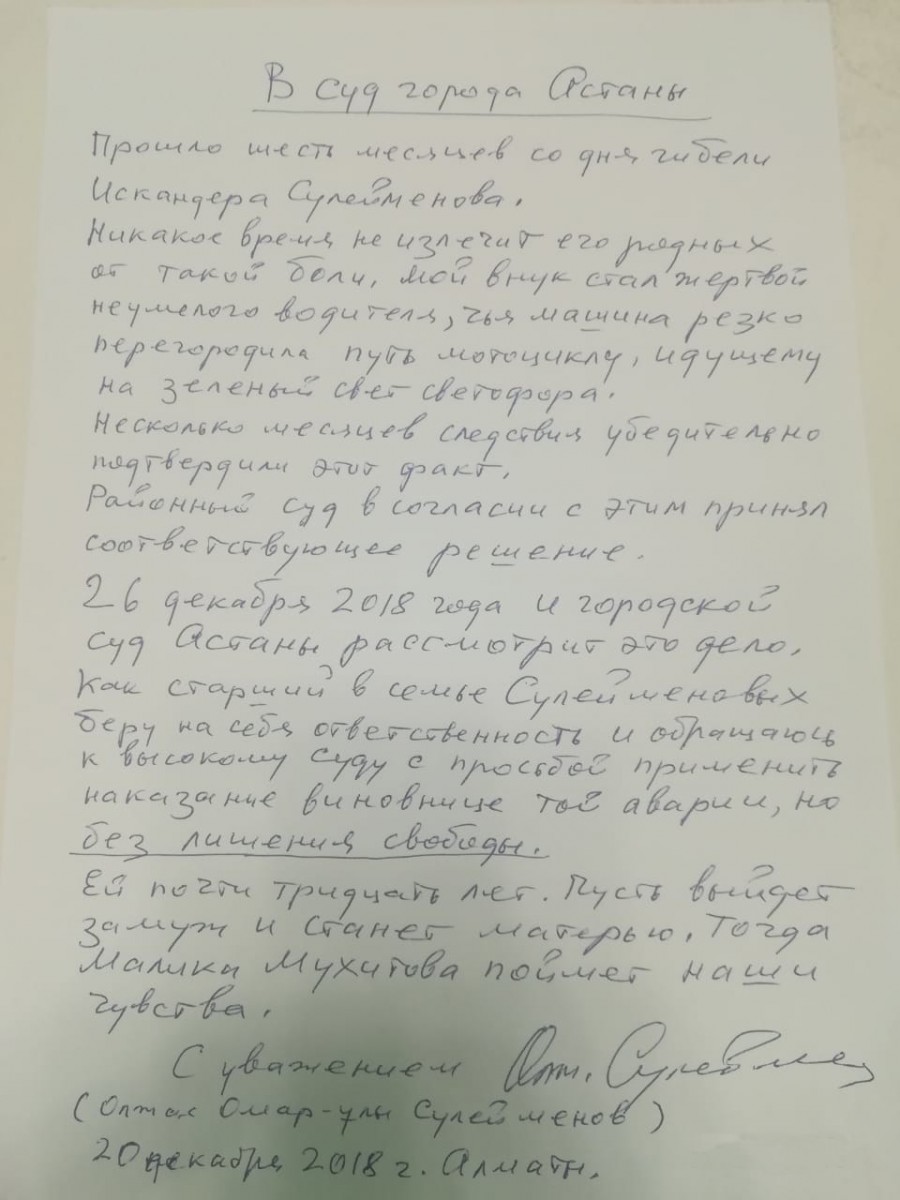 В суд города Астаны
Прошло шесть месяцев со дня гибели
Искандера Сулейменова.
Никакое время не излечит его родных
от такой боли, мой внук стал жертвой
неумелого водителя, чья машина резко
перегородила путь мотоциклу, идущему
на зеленый свет светофора.
Несколько месяцев следствия убедительно
подтвердили этот факт.
Районный суд в согласии с этим принял
соответствующее решение.
26 декабря 2018 года и городской
суд Астаны рассмотрит это дело.
Как старший в семье Сулейменовых
беру на себя ответственность и обращаюсь
к высокому суду с просьбой применить
наказание виновнице той аварии, но
без лишения свободы.
Ей почти тридцать лет. Пусть выйдет
замуж и станет матерью. Тогда
Малика Мухитова поймет наши
чувства.
С уважением Олж. Сулейме
(Олжас Омар-улы Сулейменов)
20 декабря 2018 г. Алматы.